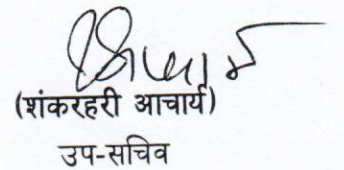 (शंकरहरी आचार्य)
उप-सचिव